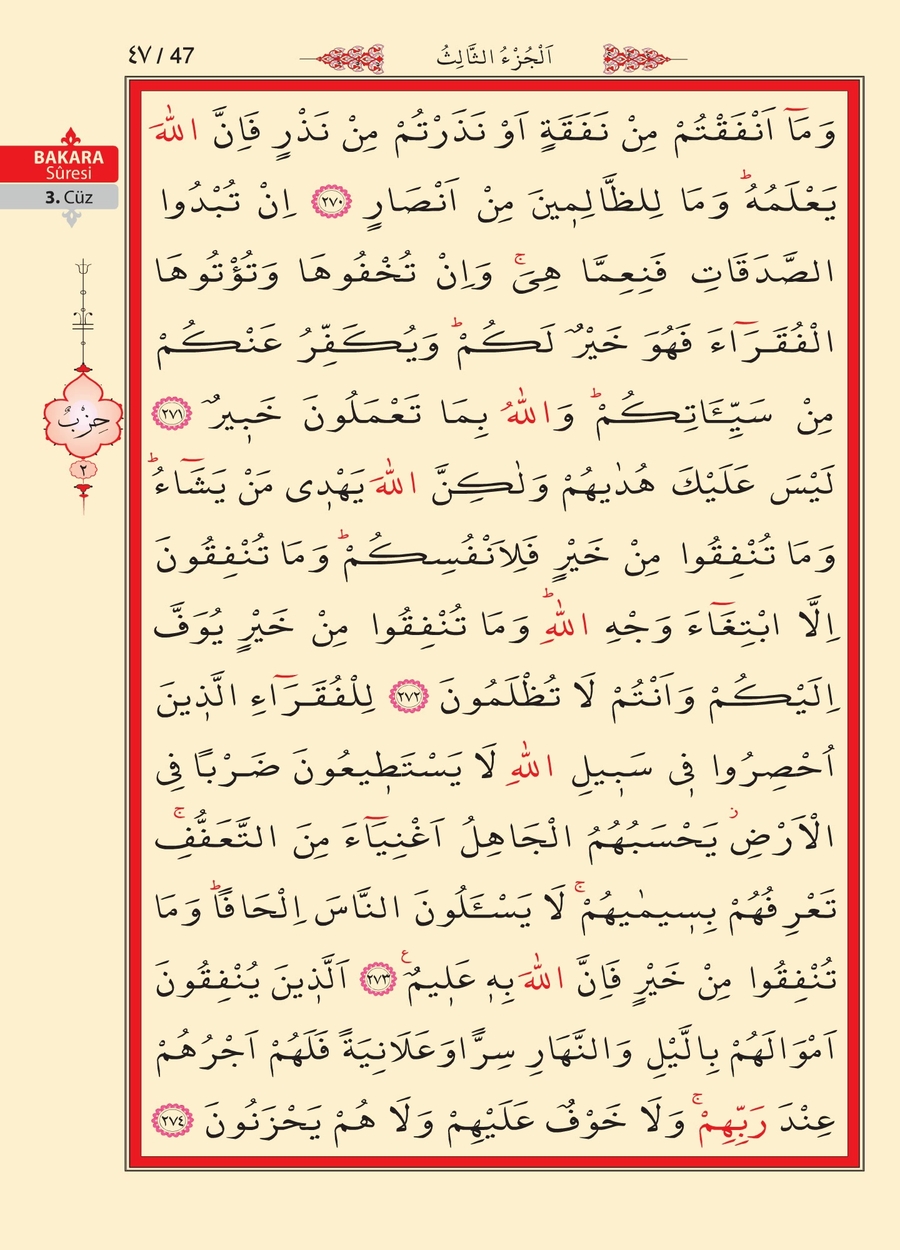 ٤٧ / 47
اَلْجُزْءُ الثَّالِثُ
BAKARA
Sûresi
3. Cüz
حِزْبٌ
٢
وَمَٓا اَنْفَقْتُمْ مِنْ نَفَقَةٍ اَوْ نَذَرْتُمْ مِنْ نَذْرٍ فَاِنَّ اللّٰهَ
يَعْلَمُهُۜ وَمَا لِلظَّالِم۪ينَ مِنْ اَنْصَارٍ ﴿٢٧٠﴾ اِنْ تُبْدُوا
الصَّدَقَاتِ فَنِعِمَّا هِيَۚ وَاِنْ تُخْفُوهَا وَتُؤْتُوهَا
الْفُقَرَٓاءَ فَهُوَ خَيْرٌ لَكُمْۜ وَيُكَفِّرُ عَنْكُمْ
مِنْ سَيِّـَٔاتِكُمْۜ وَاللّٰهُ بِمَا تَعْمَلُونَ خَب۪يرٌ ﴿٢٧١﴾
لَيْسَ عَلَيْكَ هُدٰيهُمْ وَلٰكِنَّ اللّٰهَ يَهْد۪ى مَنْ يَشَٓاءُۜ
وَمَا تُنْفِقُوا مِنْ خَيْرٍ فَلِاَنْفُسِكُمْۜ وَمَا تُنْفِقُونَ
اِلَّا ابْتِغَٓاءَ وَجْهِ اللّٰهِۜ وَمَا تُنْفِقُوا مِنْ خَيْرٍ يُوَفَّ
اِلَيْكُمْ وَاَنْتُمْ لَا تُظْلَمُونَ ﴿٢٧٢﴾ لِلْفُقَرَٓاءِ الَّذ۪ينَ
اُحْصِرُوا ف۪ى سَب۪يلِ اللّٰهِ لَا يَسْتَط۪يعُونَ ضَرْبًا فِى
الْاَرْضِۘ يَحْسَبُهُمُ الْجَاهِلُ اَغْنِيَٓاءَ مِنَ التَّعَفُّفِۚ
تَعْرِفُهُمْ بِس۪يمٰيهُمْۚ لَا يَسْـَٔلُونَ النَّاسَ اِلْحَافًاۜ وَمَا
تُنْفِقُوا مِنْ خَيْرٍ فَاِنَّ اللّٰهَ بِه۪ عَل۪يمٌ ع ﴿٢٧٣﴾ اَلَّذ۪ينَ يُنْفِقُونَ
اَمْوَالَهُمْ بِالَّيْلِ وَالنَّهَارِ سِرًّا وَعَلَانِيَةً فَلَهُمْ اَجْرُهُمْ
عِنْدَ رَبِّهِمْۚ وَلَا خَوْفٌ عَلَيْهِمْ وَلَا هُمْ يَحْزَنُونَ ﴿٢٧٤﴾